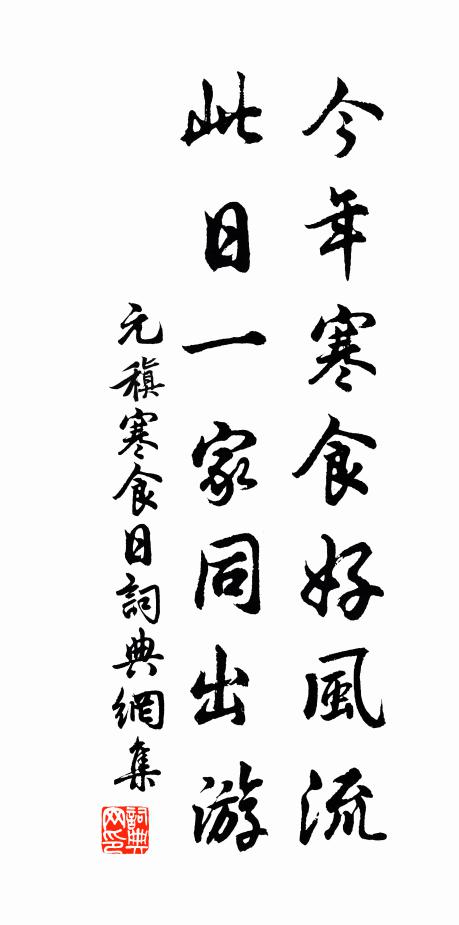 今年寒食好風流
此日一家同出游
元稹寒食日詞典網集
詞典網印